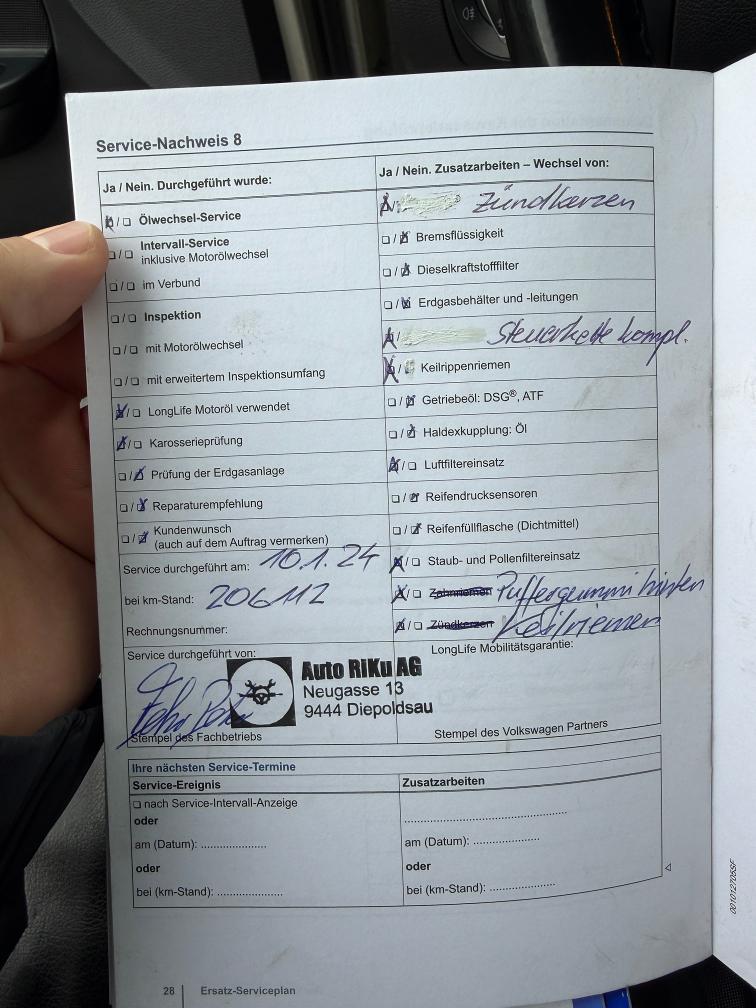 Service-Nachweis 8
Ja / Nein. Durchgeführt wurde:
Ölwechsel-Service
Intervall-Service
inklusive Motorölwechsel
im Verbund
Inspektion
mit Motorölwechsel
mit erweitertem Inspektionsumfang
LongLife Motoröl verwendet
Karosserieprüfung
Prüfung der Erdgasanlage
Reparaturempfehlung
Kundenwunsch
(auch auf dem Auftrag vermerken)
Service durchgeführt am: 10.1.24
bei km-Stand: 206112
Rechnungsnummer:
Service durchgeführt von:
Auto RiKu AG
Neugasse 13
9444 Diepoldsau
Stempel des Fachbetriebs
Ja / Nein. Zusatzarbeiten – Wechsel von:
Zündkerzen
Bremsflüssigkeit
Dieselkraftstofffilter
Erdgasbehälter und -leitungen
Steuerkette kompl.
Keilrippenriemen
Getriebeöl: DSG®, ATF
Haldexkupplung: Öl
Luftfiltereinsatz
Reifendrucksensoren
Reifenfüllflasche (Dichtmittel)
Staub- und Pollenfiltereinsatz
Zahnriemen Puffergummi hinten
Zündkerzen Keilriemen
LongLife Mobilitätsgarantie:
Stempel des Volkswagen Partners
Ihre nächsten Service-Termine
Service-Ereignis
nach Service-Intervall-Anzeige
oder
am (Datum): ......................
oder
bei (km-Stand): ......................
Zusatzarbeiten
......................................................
am (Datum): ......................
oder
bei (km-Stand): ......................
28 Ersatz-Serviceplan